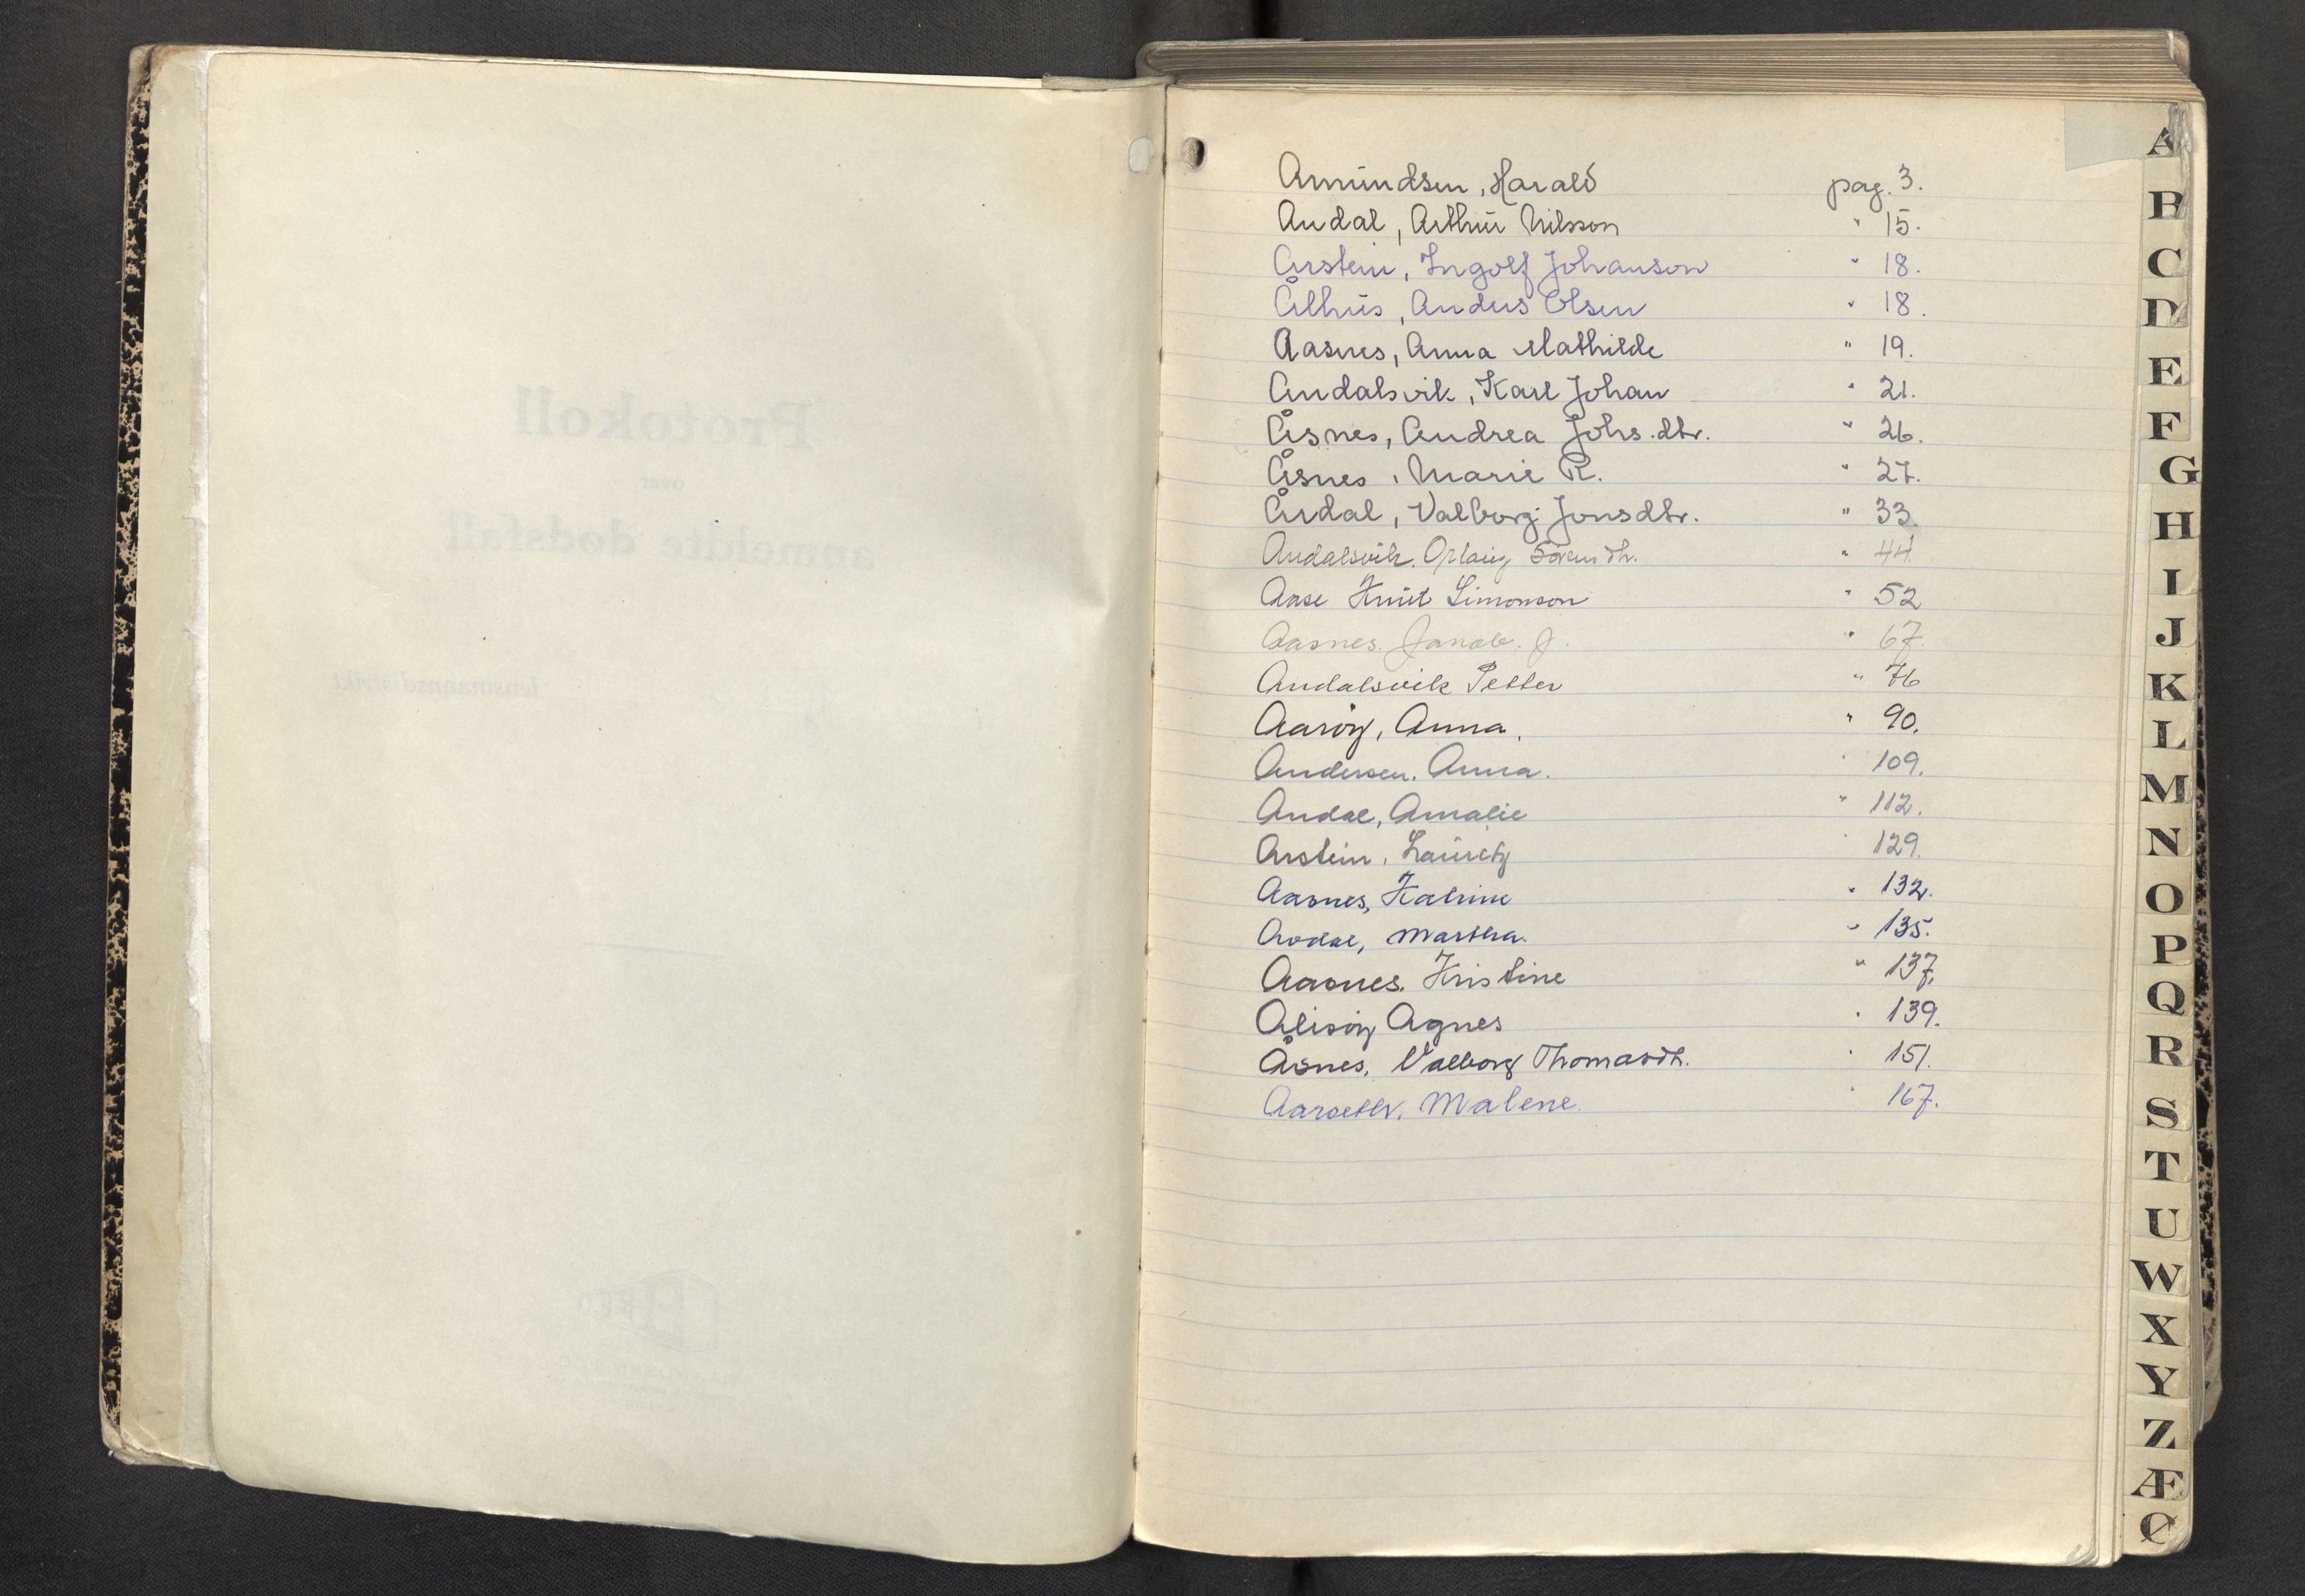 Protokoll
over
anmeldte dødsfall
lensmannsdistrikt
Amundsen, Harald pag. 3.
Andal, Arthur Nilsson " 15.
Arstein, Ingolf Johanson " 18.
Ålhus, Anders Olsen " 18.
Aasnes, Anna Mathilde " 19.
Andalsvik, Karl Johan " 21.
Åsnes, Andrea Johs.dtr. " 26.
Åsnes, Marie R. " 27.
Årdal, Valborg Jonsdtr. " 33.
Andalsvik. " 44
Aase Knut Simonson " 52
Aasnes. Jakob. J. " 67.
Andalsvik Petter " 76
Aarøy, Anna. " 90.
Andersen. Anna. " 109.
Andal, Amalie " 112.
Arstein, Lauritz " 129.
Aasnes, Katrine " 132.
Martha. " 135.
Aasnes. Kristine " 137.
Alisøy Agnes " 139.
Åsnes, Valborg Thomasdtr. " 151.
Aarseth, Malene " 167.
A
B
C
D
E
F
G
H
I
J
K
L
M
N
O
P
Q
R
S
T
U
W
X
Y
Z
Æ
Ø